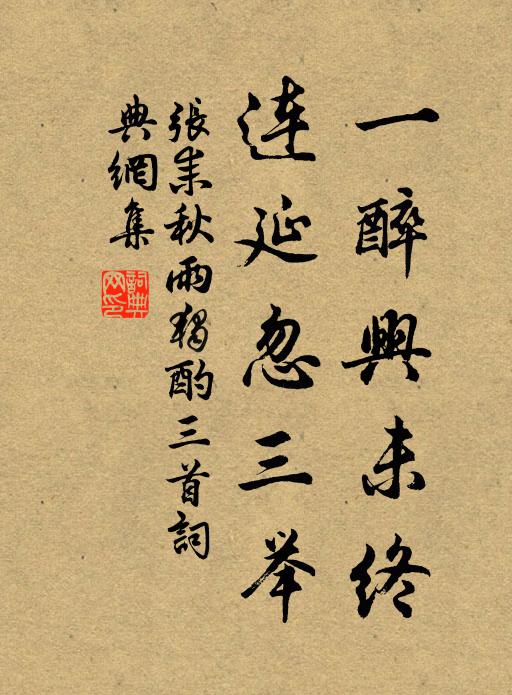 一醉興未终
连延忽三举
張耒秋雨獨酌三首詞
典網集
詞典网印